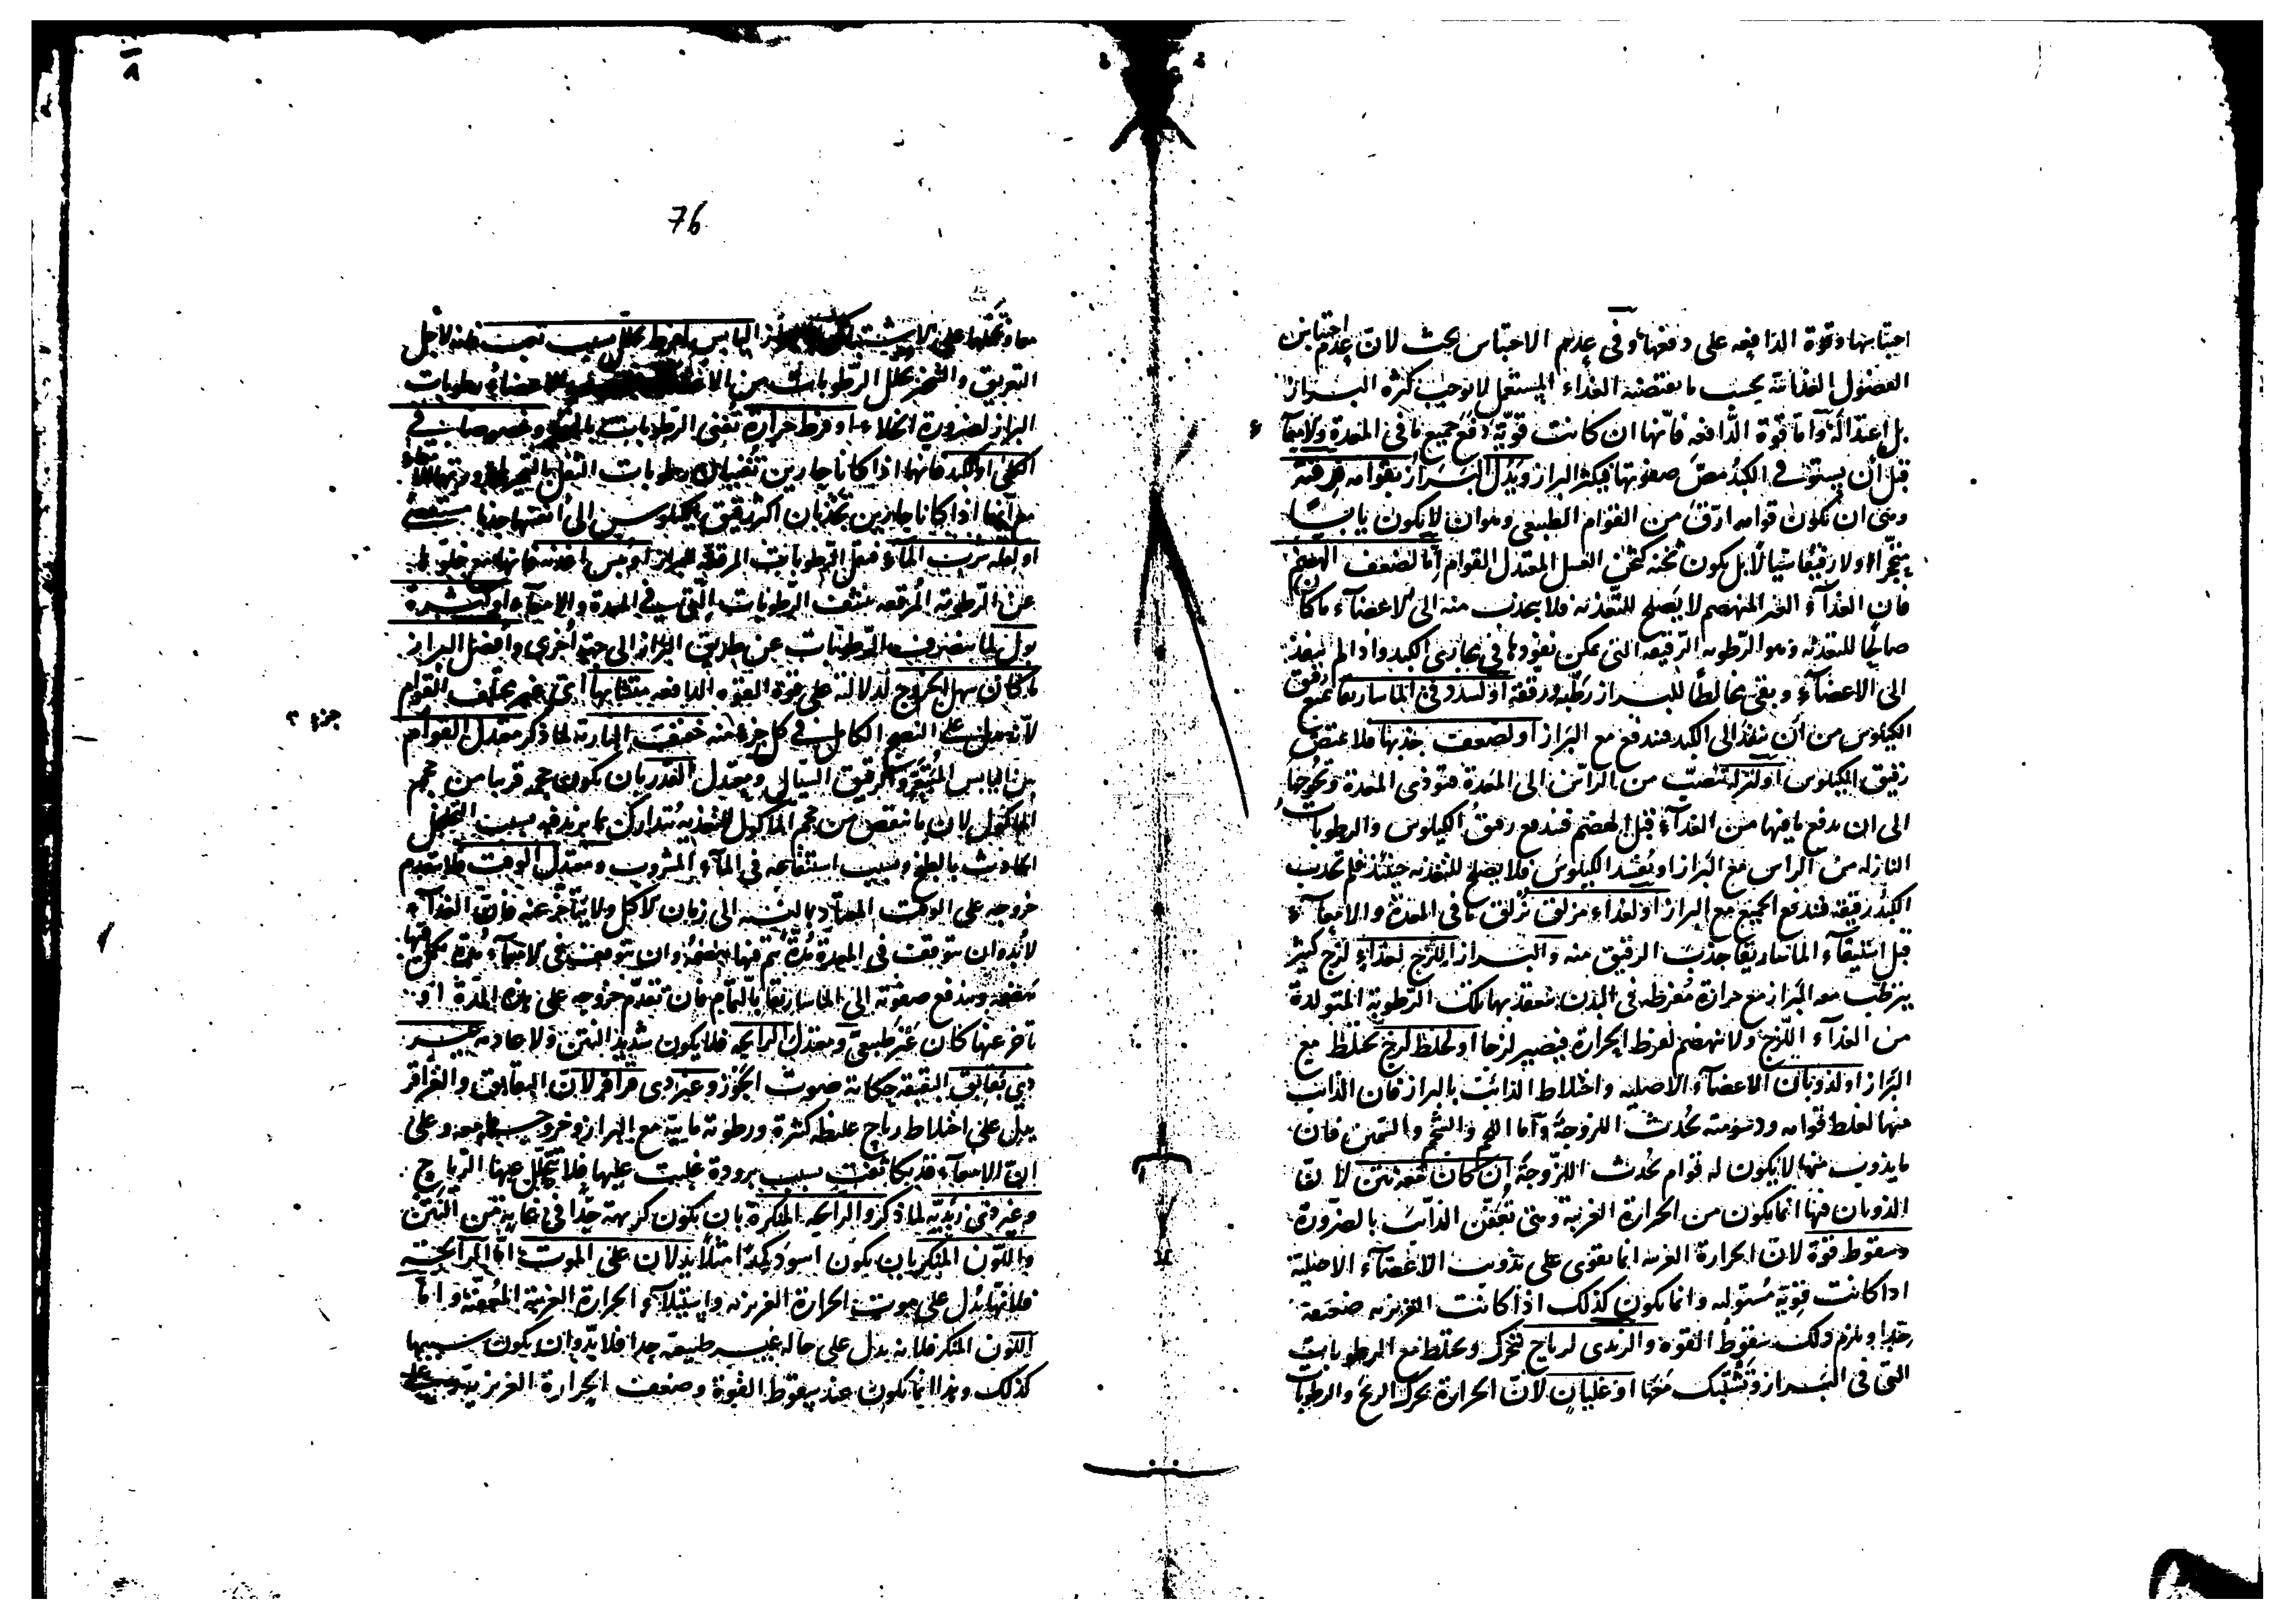 احتباسها وقوة الدافعه على دفعها وفى عدم الاحتباس بحث لان عدم احتباس
الفضول الغذائية بحسب ما يقتضيه الغذاء المستعمل لا يوجب كثرة البراز
بل اعتداله واما قوة الدافعه فانها ان كانت قوية دفع جميع ما فى المعدة والامعآء
قبل ان يستوفى الكبد مص صفوتها فيكثر البراز ويدل البراز بقوامه فرقته
وهى ان يكون قوامه ارق من القوام الطبيعى وهو ان لا يكون يابسا
متحجرا ولا رقيقا سيالا بل يكون ثخنه كثخن العسل المعتدل القوام اما لضعف الهضم
فان الغذآء الغير المنهضم لا يصلح للتغذيه فلا ينجذب منه الى الاعضآء ما كان
صالحا للتغذيه وهو الرطوبه الرقيقه التى يمكن نفوذها فى مجارى الكبد واذا لم ينفذ
الى الاعضآء وبقى مخالطا للبراز رطبه ورققه او لسدد فى الماساريقا تمنع رقيق
الكيلوس من ان ينفذ الى الكبد فيندفع مع البراز او لضعف جذبها فلا تمتص
رقيق الكيلوس او لنزله تنصب من الراس الى المعدة فتوذى المعدة وتحوجها
الى ان يدفع ما فيها من الغذآء قبل الهضم فيندفع رقيق الكيلوس والرطوبات
النازله من الراس مع البراز او يفسد الكيلوس فلا يصلح للتغذيه حينئذ فلم تجذب
الكبد رقيقه فيندفع الجميع مع البراز او لغذاء مزلق يزلق ما فى المعدة والامعآء
قبل استيفآء الماساريقا جذب الرقيق منه والبراز اللزج لغذاء لزج كثير
يترطب معه البراز مع حرارة مفرطه فى البدن ينعقد بها تلك الرطوبة المتولدة
من الغذآء اللزج ولا ينهضم لفرط الحرارة فيصير لزجا او لخلط لزج يختلط مع
البراز او لذوبان الاعضآء الاصليه واختلاط الذائب بالبراز فان الذائب
منها لغلظ قوامه ودسومته يحدث اللزوجة واما اللحم والشحم والسمين فان
ما يذوب منها لا يكون له قوام يحدث اللزوجة ان كان معه نتن لان
الذوبان فيها انما يكون من الحرارة الغريبة وهى تعفن الذائب بالضرورة
وسقوط قوة لان الحرارة الغريبه انما تقوى على تذويب الاعضآء الاصلية
اذا كانت قوية مستوليه وانما يكون كذلك اذا كانت الغريزيه ضعيفة
جدا ويلزم ذلك سقوط القوه والزبدى لرياح تتحرك وتختلط مع الرطوبات
التى فى البراز وتشتبك معها او غليان لان الحرارة تحرك الريح والرطوبات
76
التعريق والتبخر تحلل الرطوبات من
البراز لضرورة الخلاء او فرط حرارة تفنى الرطوبات وخصوصا فى
الكلى او الكبد فانها اذا كانا حارين تفنيان رطوبات الثفل
مع انهما اذا كانا حارين يجذبان اكثر رقيق الكيلوس الى انفسها جذبا
او لقله شرب المآء فتقل الرطوبات المرققه للبراز او يبس اغذيه فانها مع خلوها
عن الرطوبه المرققه تنشف الرطوبات التى فى المعدة والامعآء او كثرة
بول لما ينصرف الرطوبات عن طريق البراز الى جهة اخرى وافضل البراز
ما كان سهل الخروج لدلالته على قوة القوه الدافعه متشابها اى غير مختلف القوام
لانه يدل على النضج الكامل فى كل جزء منه خفيف الناريه لما ذكر معتدل القوام
جزء
بين اليابس والرقيق السيال ومعتدل القدر بان يكون حجمه قريبا من حجم
الماكول لان ما ينقص من حجم الماكول للتغذيه يتدارك بما يزيد فيه بسبب التخلخل
الحادث بالطبخ وبسبب استنقاعه فى المآء المشروب ومعتدل الوقت فلا يتقدم
خروجه على الوقت المعتاد بالنسبه الى زمان الاكل ولا يتاخر عنه فان الغذآء
لا بد وان يتوقف فى المعدة مدة يتم فيها هضمه وان يتوقف فى الامعآء مدة يكمل فيها
هضمه ويندفع صفوته الى الماساريقا بالتمام فان تقدم خروجه على هذه المدة او
تاخر عنها كان غير طبيعى ومعتدل الرايحه فلا يكون شديد النتن ولا حادمه غير
ذى بقابق البقبقه حكاية صوت الكوز وغير ذى قراقر لان البقابق والقراقر
يدل على اختلاط رياح غليظه كثيرة ورطوبة مايية مع البراز وخروجها معه وعلى
ان الامعآء قد تكاثفت بسبب برودة غلبت عليها فلا تتحلل عنها الرياح
وغير ذى زبدية لما ذكر والرايحه المنكرة بان يكون كريهة جدا فى غاية من النتن
واللون المنكر بان يكون اسود كمدا مثلا يدلان على الموت اما الرايحة
فلانها تدل على موت الحرارة الغريزيه واستيلآء الحرارة الغريبة المعفنة واما
اللون المنكر فلانه يدل على حاله غير طبيعية جدا فلا بد وان يكون سببها
كذلك وهذا انما يكون عند سقوط القوة وضعف الحرارة الغريزية